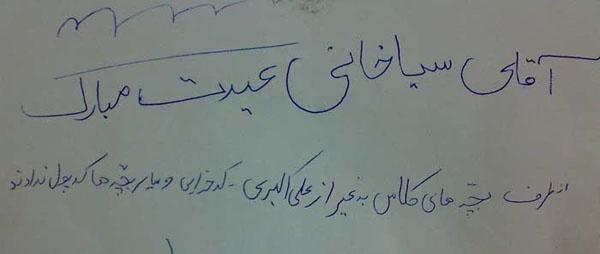 آقای سیاخانی عیدت مبارک
از طرف بچه های کلاس به غیر از علی اکبری - کدخدایی و سایر بچه ها که پول ندادند